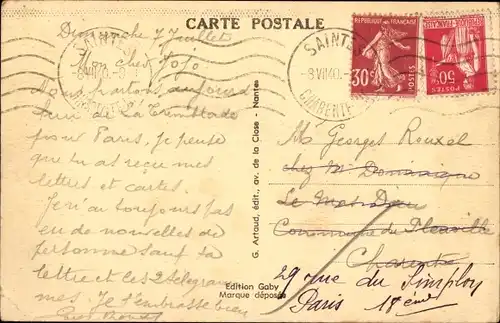 CARTE POSTALE
Dimanche 7 Juillet
Mon cher Jojo.
Nous partons aujourd
hui de La Tremblade
pour Paris, je pense
que tu as reçu mes
lettres et cartes.
Je n'ai toujours pas
eu de nouvelles de
personne sauf ta
lettre et ces 2 télégram
mes. Je t'embrasse bien
G. Artaud, édit., av. de la Close - Nantes
Edition Gaby
Marque déposée
SAINTE
-8 VII 40
CHARENTE
REPUBLIQUE FRANÇAISE
30c
POSTES
50c
POSTES
SAINTE
-8 VII 40
CHARENTE
M Georges Rouxel
chez M Dominique
Le
Commune de
Charente
29 rue du Simplon
Paris 18ème